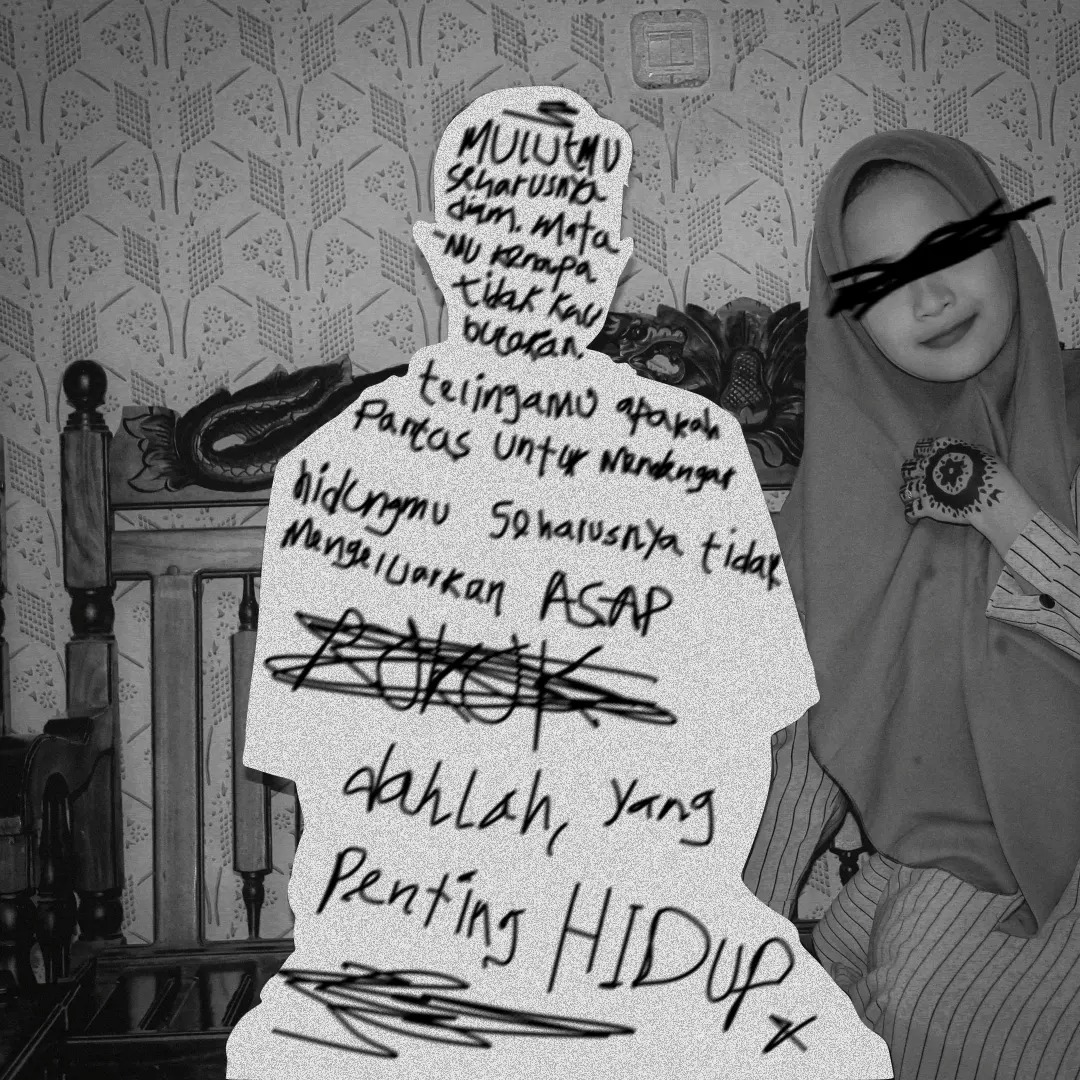 MULUTMU
seharusnya
diam. Mata
-MU kenapa
tidak kau
butakan.
telingamu apakah
Pantas untuk Mendengar
hidungmu seharusnya tidak
Mengeluarkan ASAP
ROKOK
dahlah, yang
Penting HIDUP